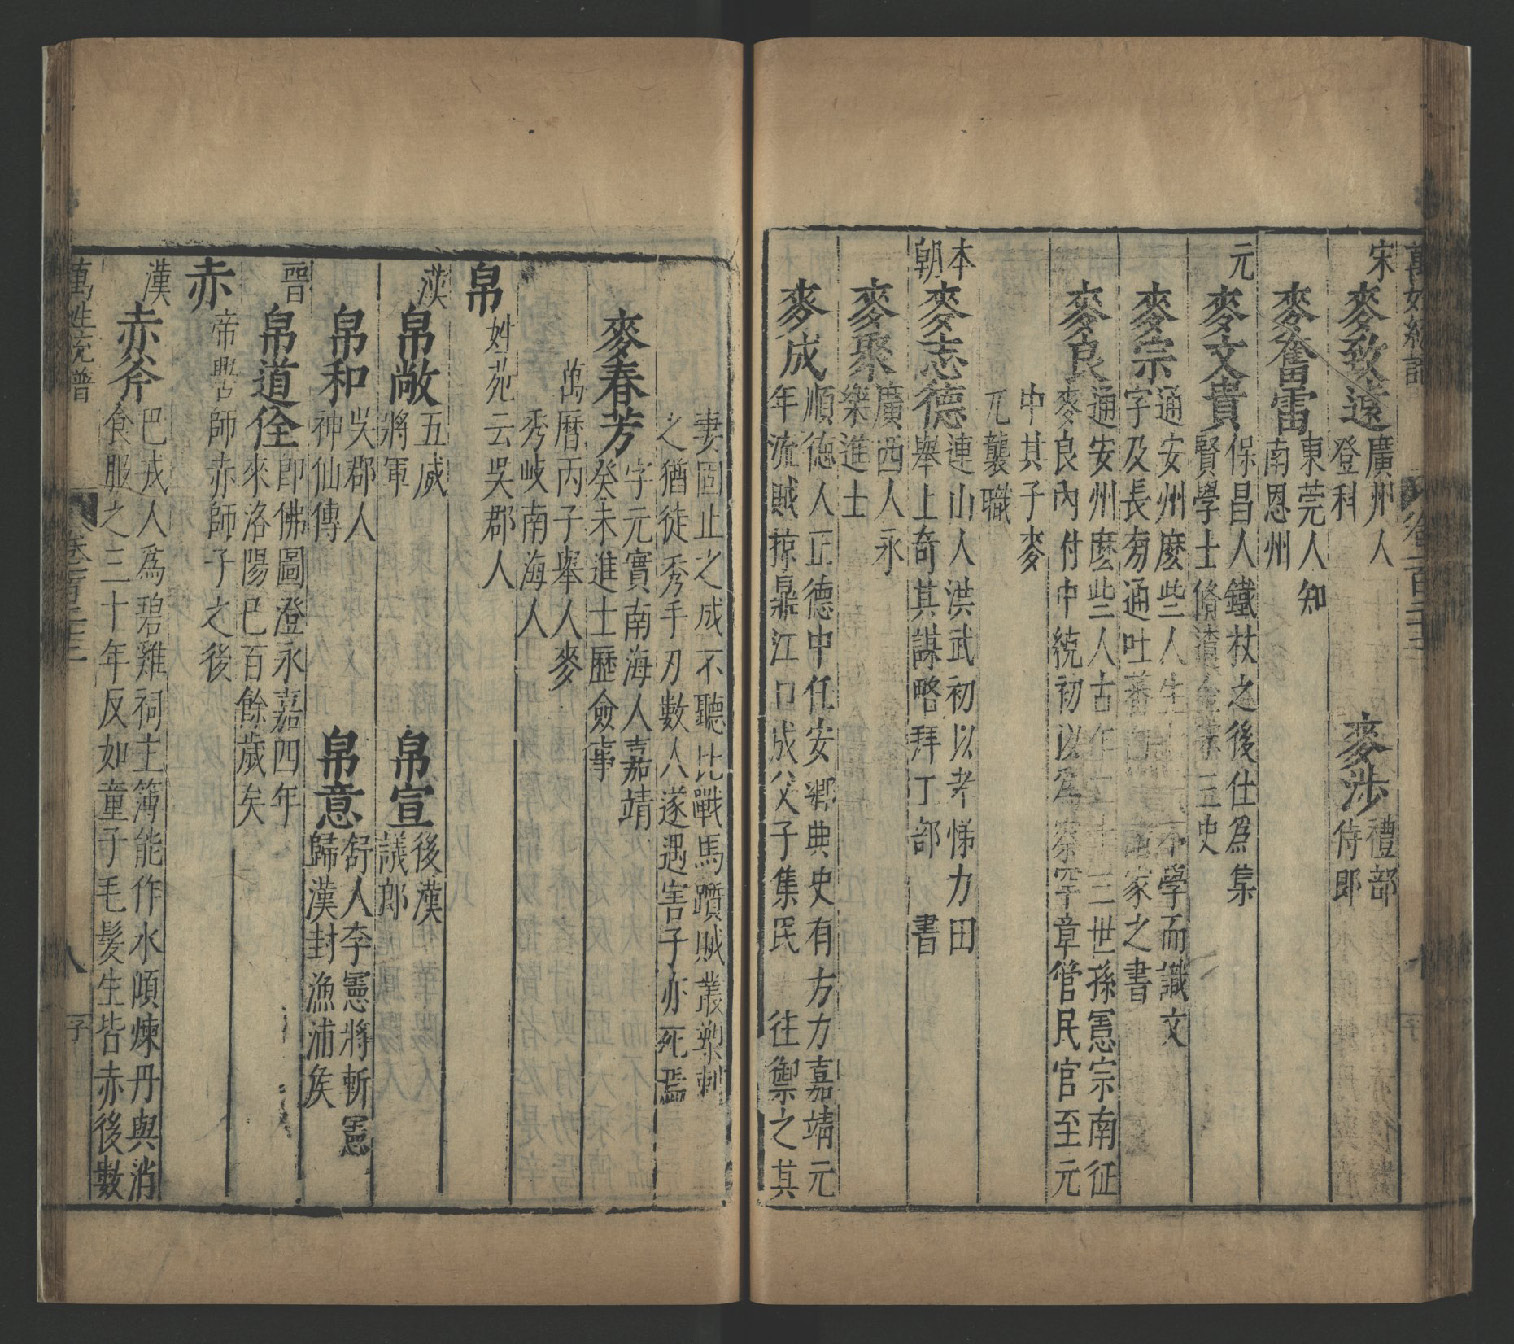 萬姓統譜 卷一百二十三
宋 麥致遠 廣州人登科 麥涉 禮部侍郎
麥奮雷 東莞人知南恩州
元 麥文貴 保昌人鐵杖之後仕爲集賢學士脩 三史
麥宗 通安州麼些人生 不學而識文字及長旁通吐蕃 家之書
麥良 通安州麼些人古 三世孫憲宗南征麥良內付中統初以爲察罕章管民官至元
中其子麥兀襲職
本朝 麥志德 連山人洪武初以孝悌力田舉上奇其謀略拜工部 書
麥聚 廣西人永樂進士
麥成 順德人正德中任安鄉典史有方力嘉靖元年流賊掠鼎江口成父子集民 往禦之其
妻固止之成不聽比戰馬躓賊叢槊刺之猶徒秀手刃數人遂遇害子亦死焉
麥春芳 字元實南海人嘉靖癸未進士歷僉事
萬曆丙子舉人麥秀岐南海人
帛 姓苑云吳郡人
漢 帛敞 五威將軍 帛宣 後漢議郎
帛和 吳郡人神仙傳 帛意 舒人李憲將斬憲歸漢封漁浦矦
晉 帛道佺 卽佛圖澄永嘉四年來洛陽已百餘歲矣
赤 帝嚳師赤師子之後
漢 赤斧 巴戎人爲碧雞祠主簿能作水澒煉丹與消食服之三十年反如童子毛髮生皆赤後數
萬姓統譜 卷一百二十三 八 字